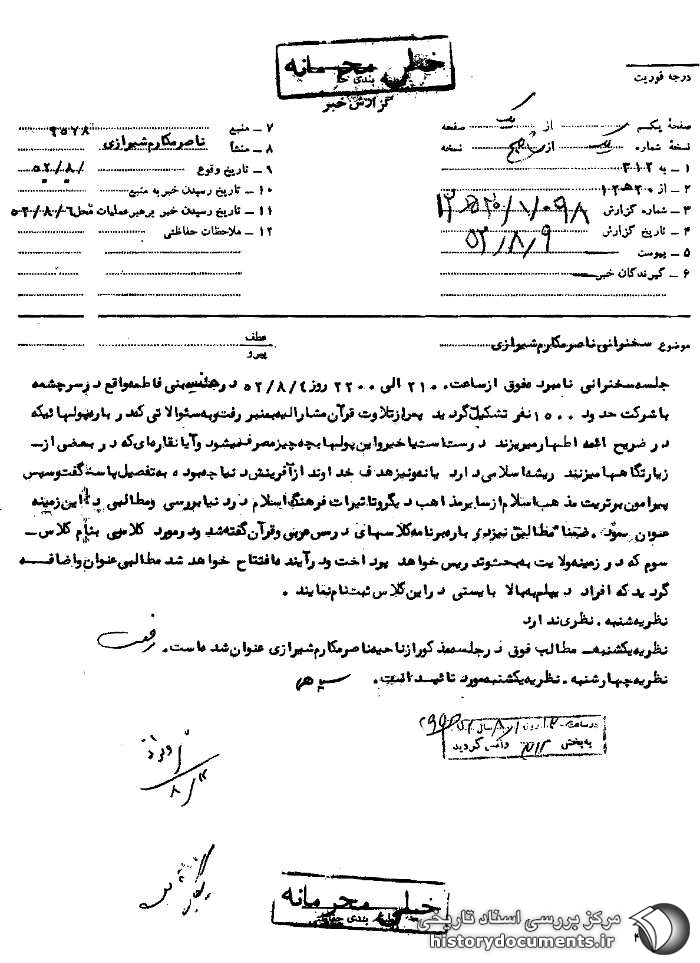 خیلی محرمانه
گزارش خبر
درجه فوریت
صفحهٔ یکم از یک صفحه
نسخهٔ شماره یک از نسخه
۱ - به ۳۱۲
۲ - از ۲۰ ه ۱۲
۳ - شماره گزارش
۴ - تاریخ گزارش ۵۲/۸/۹
۵ - پیوست
۶ - گیرندگان خبر
۷ - منبع ۹۵۷۸
۸ - منشأ ناصر مکارم شیرازی
۹ - تاریخ وقوع
۱۰ - تاریخ رسیدن خبر به منبع
۱۱ - تاریخ رسیدن خبر برهبر عملیات محل ۵۲/۸/۶
۱۲ - ملاحظات حفاظتی
موضوع سخنرانی ناصر مکارم شیرازی
عطف
پیرو
جلسه سخنرانی نامبرده فوق از ساعت ۲۱۰۰ الی ۲۲۰۰ روز ۵۲/۸/٤ در بنی فاطمه واقع در سرچشمه
با شرکت حدود ۱۵۰۰ نفر تشکیل گردید پس از تلاوت قرآن مشارالیه به منبر رفت و به سئوالاتی که در باره پولهائیکه
در ضریح ائمه اطهار میریزند درست است یا خیر و این پولها بچه چیز مصرف میشود و آیا نقاره‌ای که در بعضی از -
زیارتگاهها میزنند ریشه اسلامی دارد یا نه و نیز هدف خداوند از آفرینش دنیا چه بوده به تفصیل پاسخ گفت و سپس
پیرامون برتریت مذهب اسلام از سایر مذاهب دیگر و تاثیرات فرهنگ اسلام در دنیا بررسی و مطالبی در این زمینه
عنوان نمود. ضمنا مطالبی نیز در باره برنامه کلاسهای درس عربی و قرآن گفته شد و در مورد کلاسی بنام کلاس -
سوم که در زمینه ولایت به بحث و تدریس خواهد پرداخت و در آینده افتتاح خواهد شد مطالبی عنوان و اضافه
گردید که افراد دیپلم به بالا بایستی در این کلاس ثبت نام نمایند.
نظریه شنبه. نظری ندارد
نظریه یکشنبه. مطالب فوق در جلسه مذکور از ناحیه ناصر مکارم شیرازی عنوان شده است. رفعت
نظریه چهارشنبه. نظریه یکشنبه مورد تائید است. سپهر
در ساعت روز سال
به بخش ۳۱۲ واصل گردید
۸/۱۲
خیلی محرمانه
مرکز بررسی اسناد تاریخی
historydocuments.ir